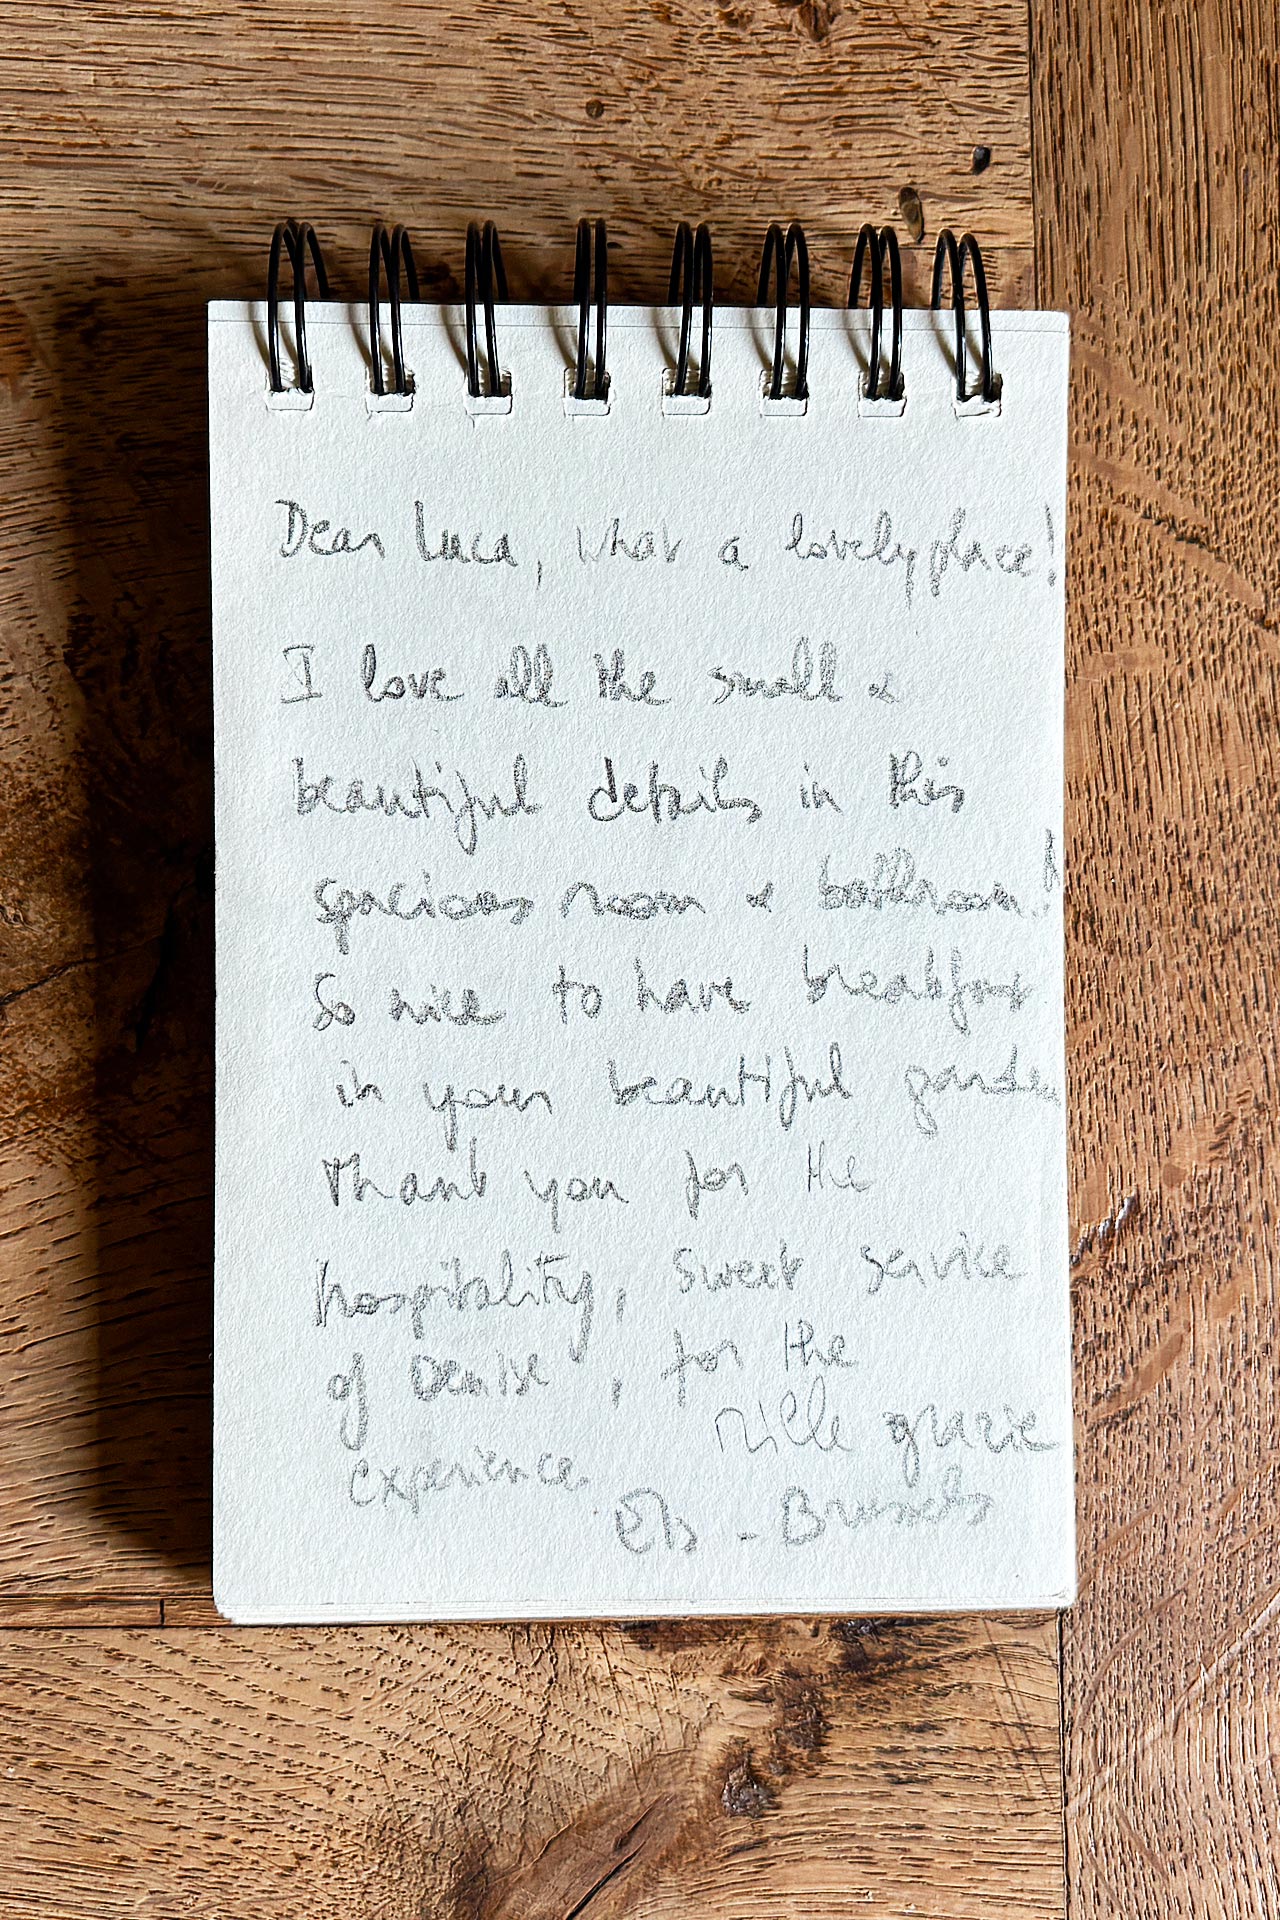 Dear Luca, what a lovely place!
I love all the small &
beautiful details in this
spacious room & bathroom!
So nice to have breakfast
in your beautiful garden
Thank you for the
hospitality, sweet service
of Denise, for the
experience.
Mille grazie
Els - Brussels